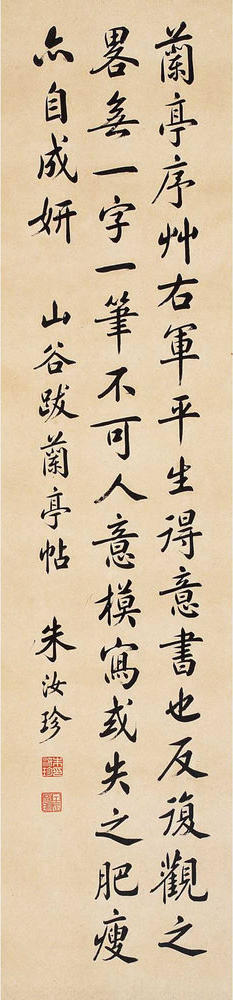 蘭亭序艸右軍平生得意書也反復觀之
畧無一字一筆不可人意模寫或失之肥瘦
亦自成妍
山谷跋蘭亭帖
朱汝珍